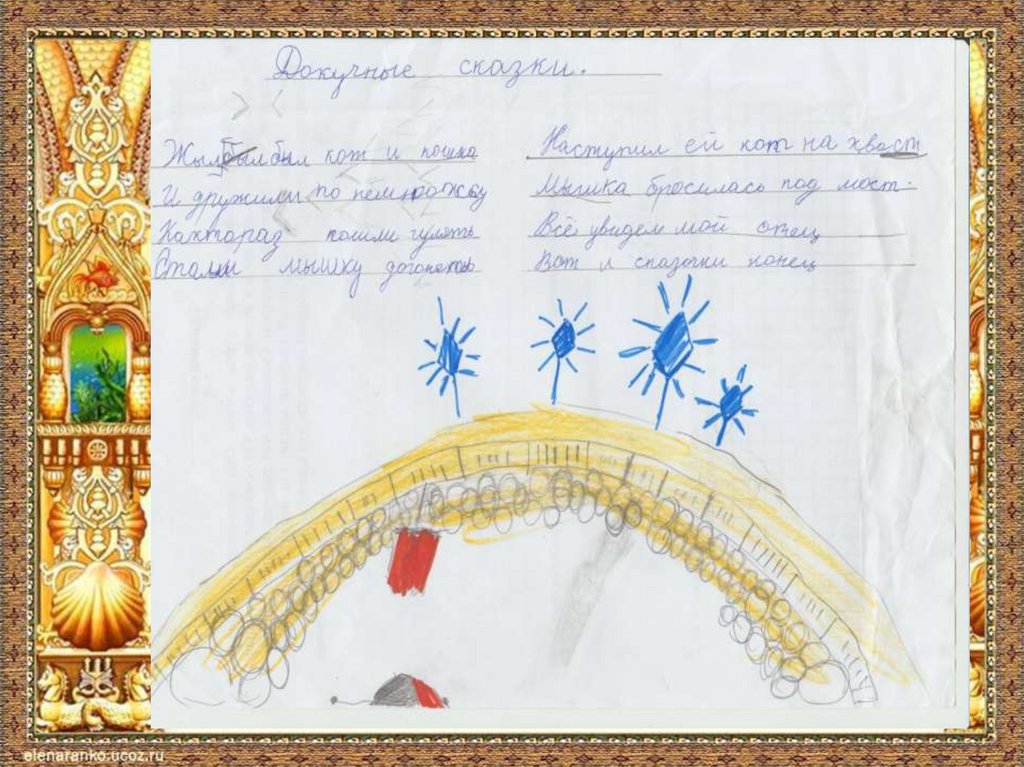 Докучные сказки.
Жыл был кот и кошка
И дружили по
Кактораз пошли гулять
Стали мышку догонять
Наступил ей кот на хваст
Мышка бросилась под мост.
Всё увидем мой отец
Вот и сказочки конец
elenaranko.ucoz.ru